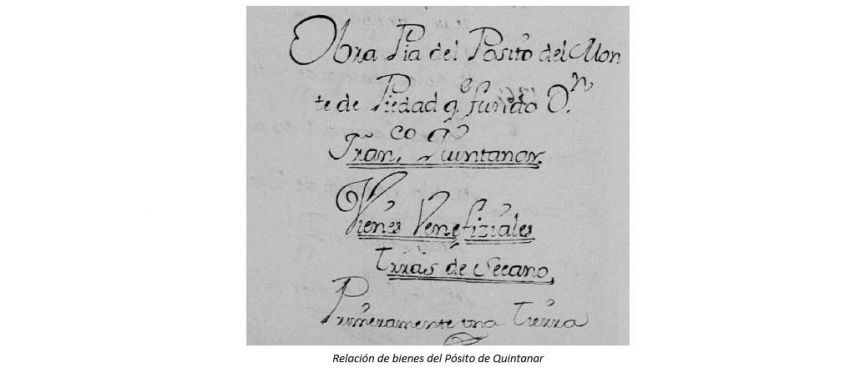 Obra Pia del Posito del Mon
te de Piedad q.e fundo D.n
Fran.co Quintanar.
Vienes Venefiziales
Trras de Secano,
Primeramente una Tierra
Relación de bienes del Pósito de Quintanar